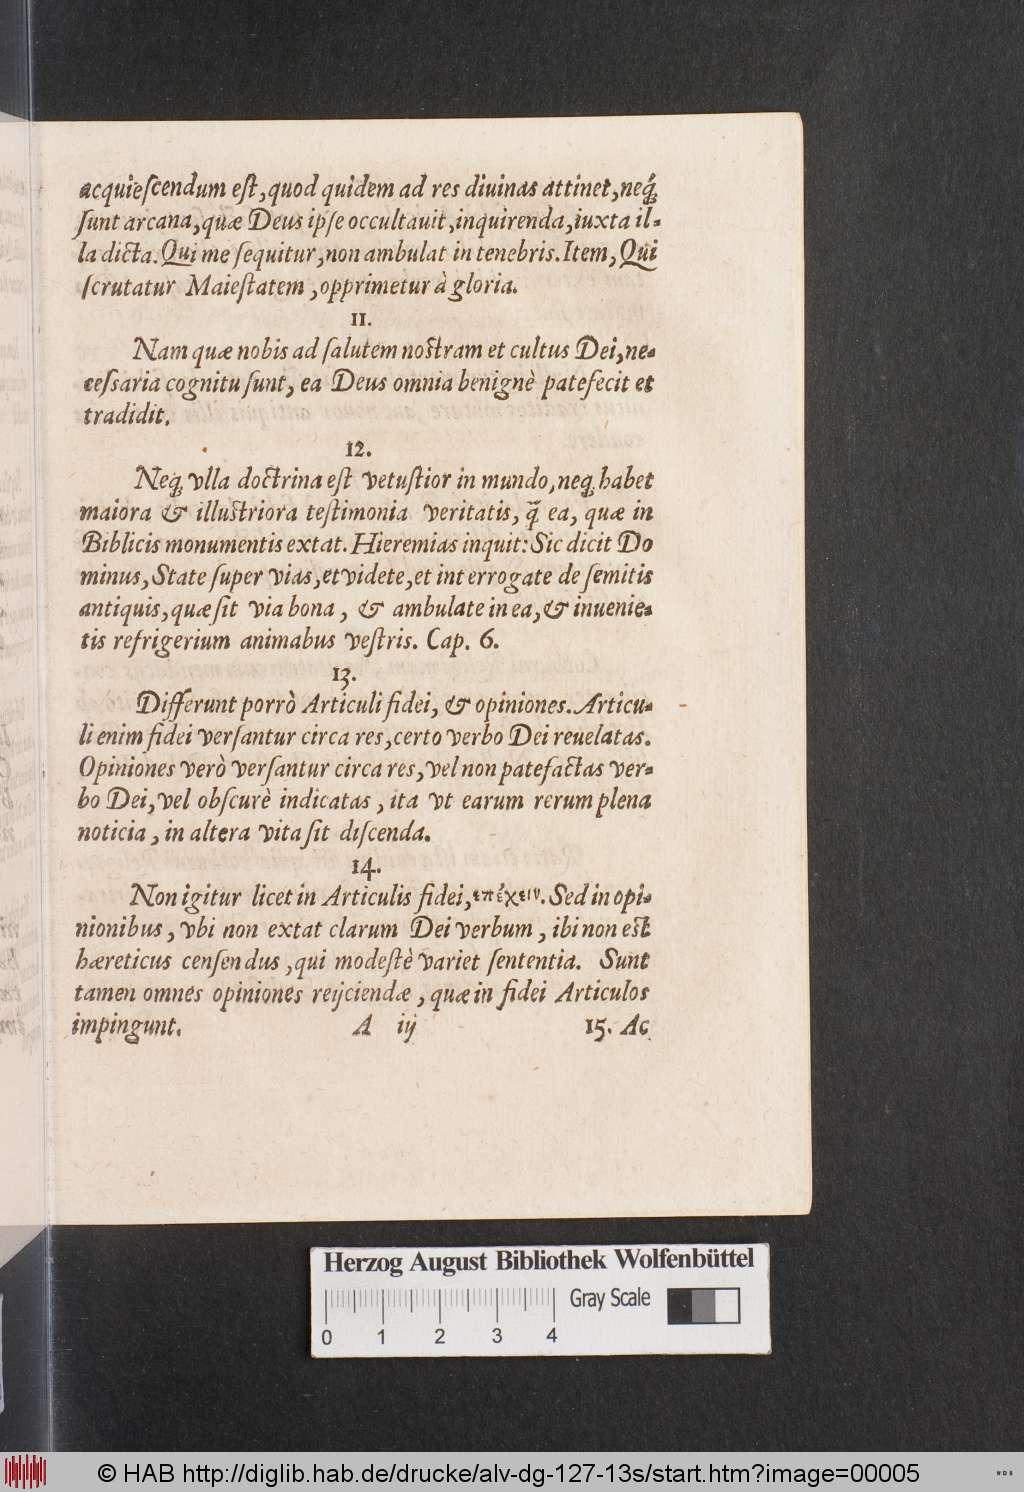 acquieſcendum eſt, quod quidem ad res diuinas attinet, neq́;
ſunt arcana, quæ Deus ipſe occultauit, inquirenda, iuxta il-
la dicta. Qui me ſequitur, non ambulat in tenebris. Item, Qui
ſcrutatur Maieſtatem, opprimetur à gloria.
11.
Nam quæ nobis ad ſalutem noſtram et cultus Dei, ne-
ceſsaria cognitu ſunt, ea Deus omnia benignè patefecit et
tradidit.
12.
Neq; vlla doctrina eſt vetuſtior in mundo, neq; habet
maiora & illuſtriora teſtimonia veritatis, q̃ ea, quæ in
Biblicis monumentis extat. Hieremias inquit: Sic dicit Do
minus, State ſuper vias, et videte, et interrogate de ſemitis
antiquis, quæ ſit via bona, & ambulate in ea, & inuenie-
tis refrigerium animabus veſtris. Cap. 6.
13.
Differunt porrò Articuli fidei, & opiniones. Articu-
li enim fidei verſantur circa res, certo verbo Dei reuelatas.
Opiniones verò verſantur circa res, vel non patefactas ver-
bo Dei, vel obſcurè indicatas, ita vt earum rerum plena
noticia, in altera vita ſit diſcenda.
14.
Non igitur licet in Articulis fidei, επέχειν. Sed in opi-
nionibus, vbi non extat clarum Dei verbum, ibi non eſt
hæreticus cenſendus, qui modeſtè variet ſententia. Sunt
tamen omnes opiniones reijciendæ, quæ in fidei Articulos
impingunt. A iij 15. Ac
Herzog August Bibliothek Wolfenbüttel
Gray Scale
0 1 2 3 4
© HAB http://diglib.hab.de/drucke/alv-dg-127-13s/start.htm?image=00005